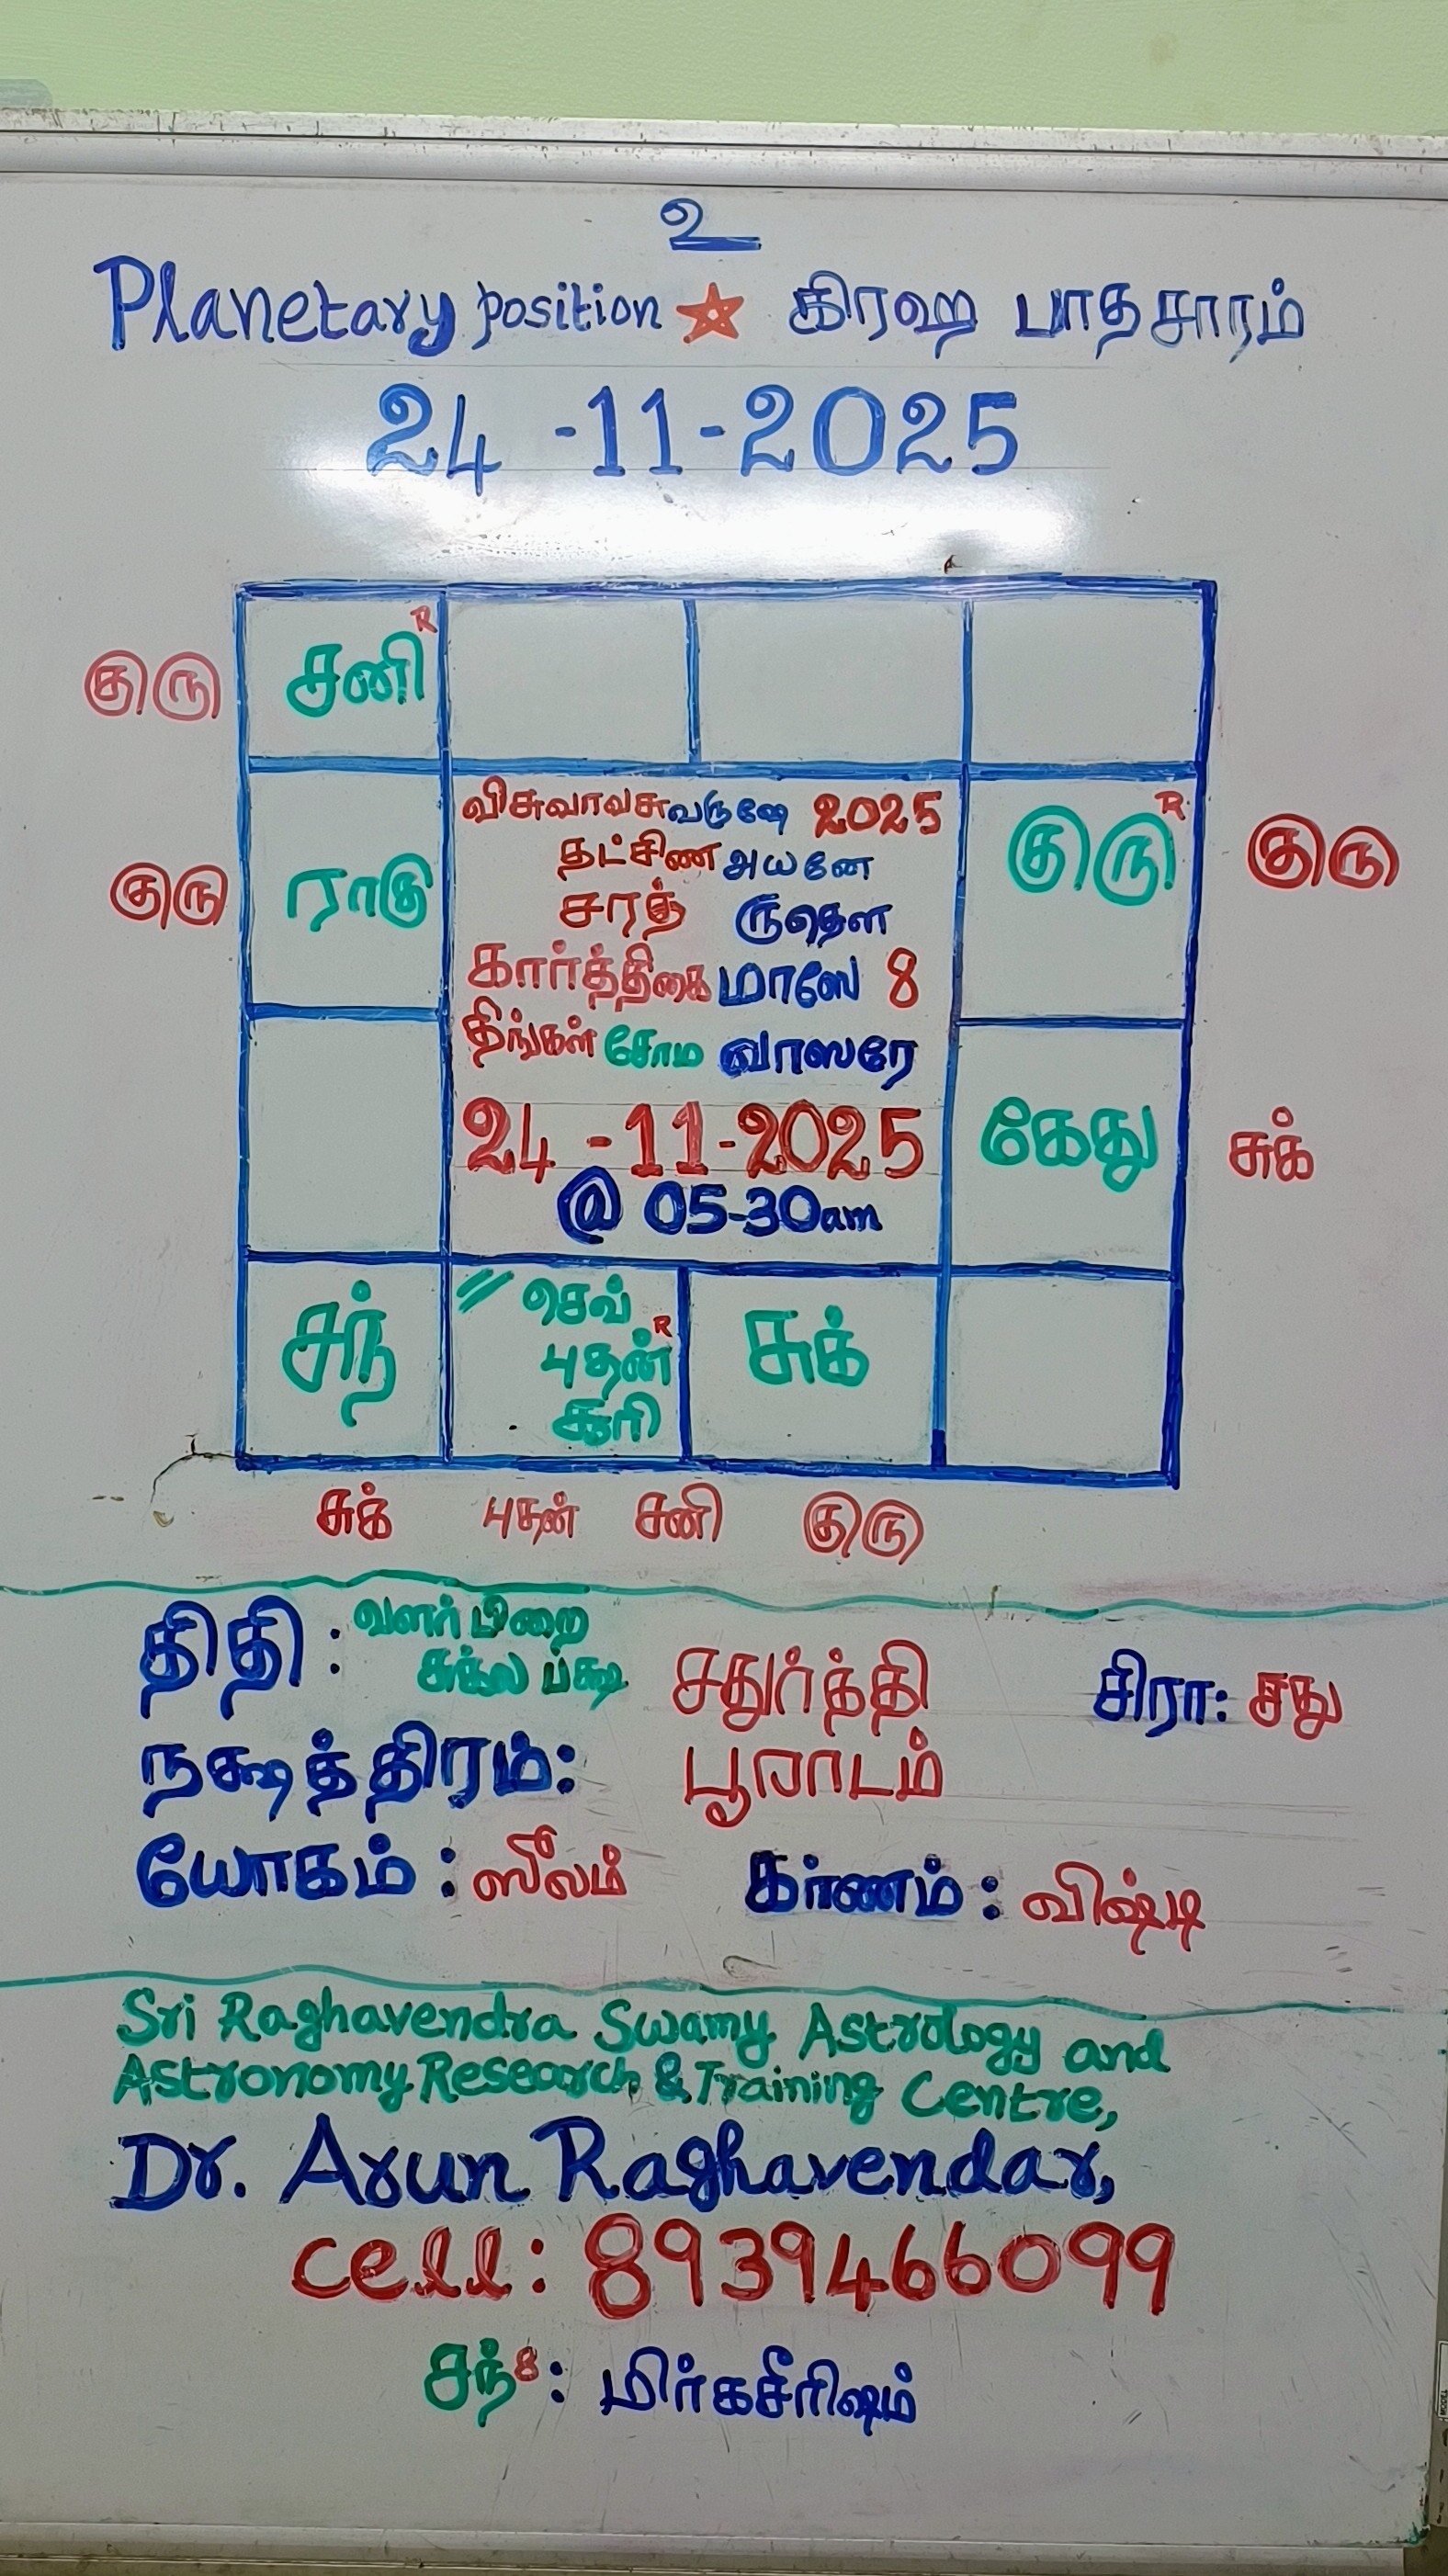 உ
Planetary position ☆ கிரஹ பாதசாரம்
24-11-2025
குரு சனி R
விசுவாவசு வருஷே 2025
தட்சிண அயனே
சரத் ருதௌ
கார்த்திகை மாஸே 8
திங்கள் சோம வாஸரே
24-11-2025
@ 05-30am
குரு ராகு
குரு R குரு
கேது சுக்
சந்
// செவ்
புதன் R
சூரி
சுக்
சுக் புதன் சனி குரு
திதி : வளர்பிறை
சுக்ல பக்ஷ சதுர்த்தி சிரா: சது
நக்ஷத்திரம்: பூராடம்
யோகம் : ஸூலம் கர்ணம் : விஷ்டி
Sri Raghavendra Swamy Astrology and
Astronomy Research & Training Centre,
Dr. Arun Raghavendar,
cell: 8939466099
சந் 8 : மிர்கசீரிஷம்